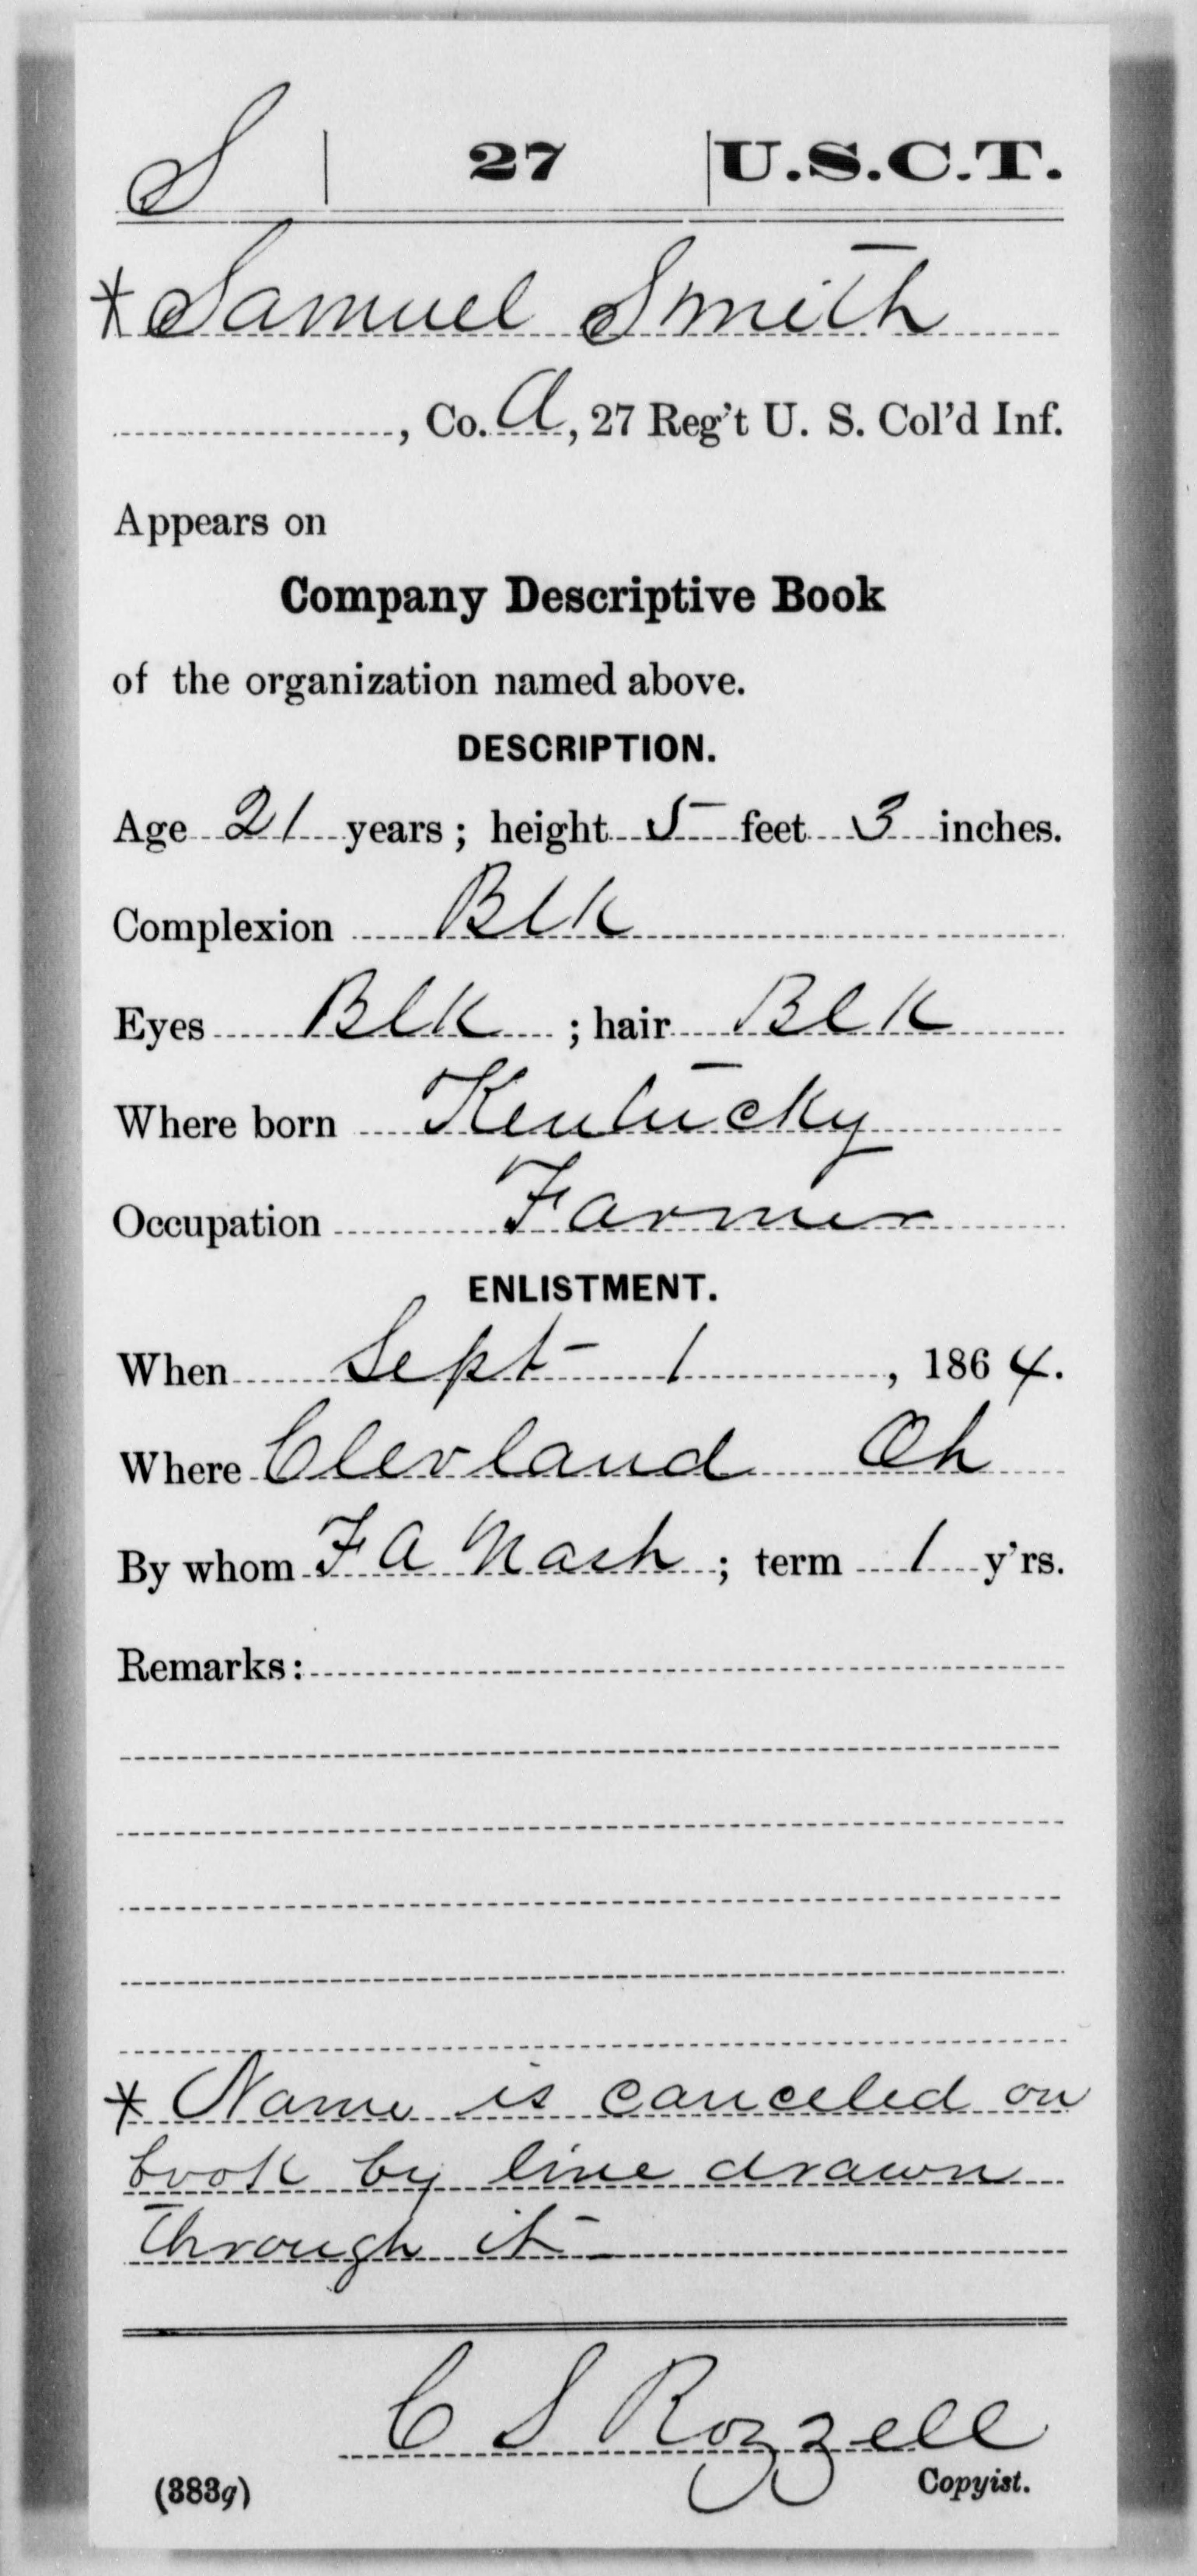 S | 27 | U.S.C.T.
* Samuel Smith
, Co. A, 27 Reg't U. S. Col'd Inf.
Appears on
Company Descriptive Book
of the organization named above.
DESCRIPTION.
Age 21 years; height 5 feet 3 inches.
Complexion Blk
Eyes Blk; hair Blk
Where born Kentucky
Occupation Farmer
ENLISTMENT.
When Sept 1, 1864.
Where Clevland Oh
By whom F A Nash; term 1 y'rs.
Remarks:
* Name is canceled on
book by line drawn
through it
C S Rozzell
(383g) Copyist.